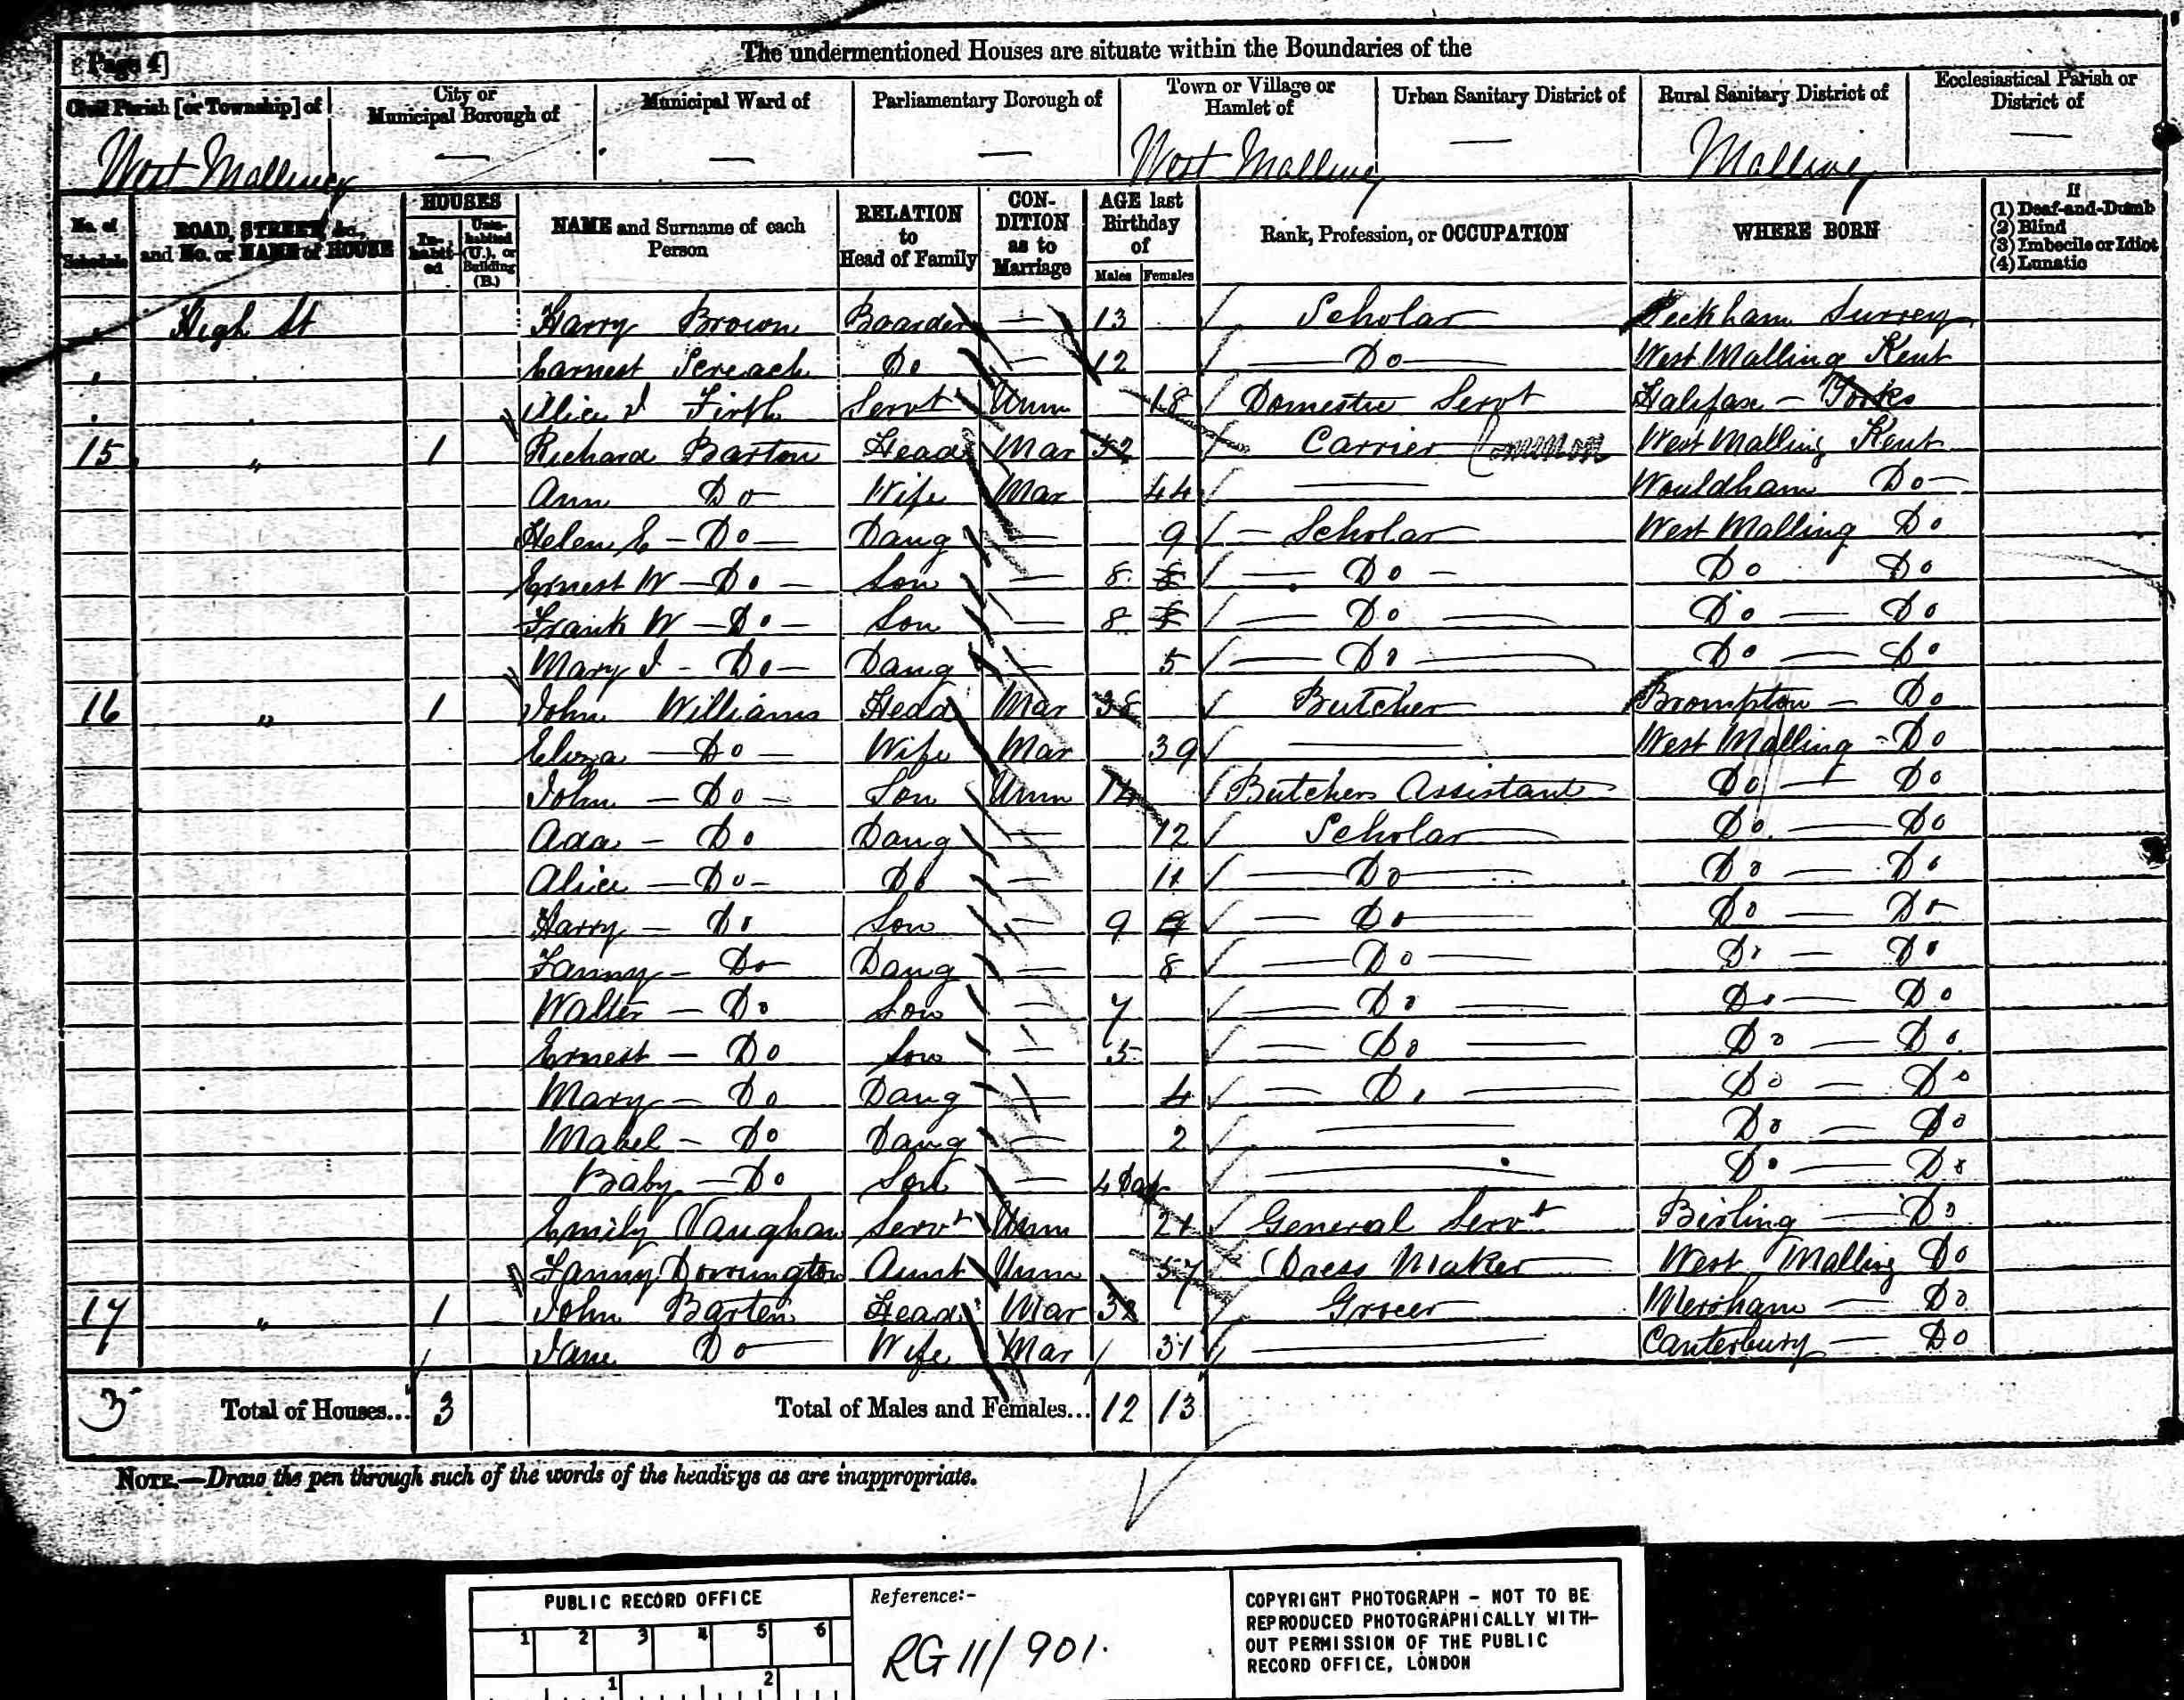 Page 4]
The undermentioned Houses are situate within the Boundaries of the
Civil Parish [or Township] of City or Municipal Borough of Municipal Ward of Parliamentary Borough of Town or Village or Hamlet of Urban Sanitary District of Rural Sanitary District of Ecclesiastical Parish or District of
West Malling — — — West Malling — Malling —
No. of Schedule ROAD, STREET, &c., and No. or NAME of HOUSE HOUSES In-habit-ed Unin-habited (U.), or Building (B.) NAME and Surname of each Person RELATION to Head of Family CON-DITION as to Marriage AGE last Birthday of Males Females Rank, Profession, or OCCUPATION WHERE BORN If (1) Deaf-and-Dumb (2) Blind (3) Imbecile or Idiot (4) Lunatic
High St Harry Brown Boarder — 13 Scholar Peckham Surrey
Earnest Do — 12 Do West Malling Kent
Alice J Firth Servt Unm 18 Domestic Servt Halifax – Yorks
15 " 1 Richard Barton Head Mar 52 Carrier Common West Malling Kent
Ann Do Wife Mar 44 — Wouldham Do
Helen E – Do Daug — 9 Scholar West Malling Do
Ernest W – Do Son — 8 8 Do Do Do
Frank W – Do Son — 8 8 Do Do Do
Mary J – Do Daug — 5 Do Do Do
16 " 1 John Williams Head Mar 38 Butcher Brompton – Do
Eliza – Do Wife Mar 39 — West Malling – Do
John – Do Son Unm 14 Butchers Assistant Do Do
Ada – Do Daug — 12 Scholar Do Do
Alice – Do Do — 11 Do Do Do
Harry – Do Son — 9 9 Do Do Do
Fanny – Do Daug — 8 Do Do Do
Walter – Do Son — 7 Do Do Do
Ernest – Do Son — 5 Do Do Do
Mary – Do Daug — 4 Do Do Do
Mabel – Do Daug — 2 — Do Do
Baby – Do Son — 4 Day — Do Do
Emily Vaughan Servt Unm 21 General Servt Birling – Do
Fanny Dorrington Aunt Unm 57 Dress Maker West Malling Do
17 " 1 John Barten Head Mar 32 Grocer Mersham – Do
Jane Do Wife Mar 31 — Canterbury – Do
3 Total of Houses... 3 Total of Males and Females... 12 13
NOTE.—Draw the pen through such of the words of the headings as are inappropriate.
PUBLIC RECORD OFFICE
1 2 3 4 5 6
1 2
Reference:-
RG 11/901.
COPYRIGHT PHOTOGRAPH - NOT TO BE
REPRODUCED PHOTOGRAPHICALLY WITH-
OUT PERMISSION OF THE PUBLIC
RECORD OFFICE, LONDON